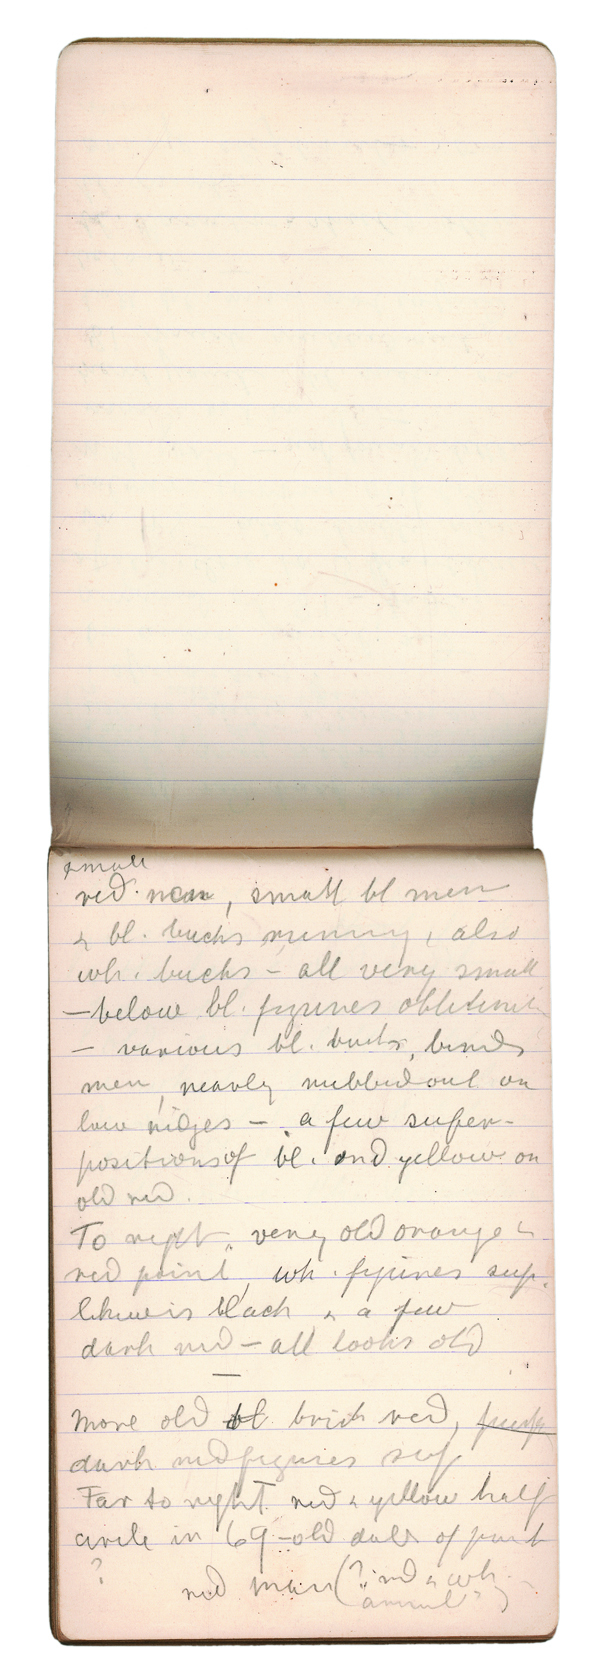 small
red men, small bl men
& bl. bucks running, also
wh. bucks - all very small
- below bl. figures
- various bl. bucks, birds
men, nearly rubbed out on
low ridges - a few super-
positions of bl. and yellow on
old red.
To right, very old orange &
red paint, wh. figures sup.
likewis black & a few
dark red - all looks old
—
More old bl brick red,
dark red figures sup
Far to right red & yellow half
circle in 69 - old of paint
?
red man (? red & wh.
animal?)